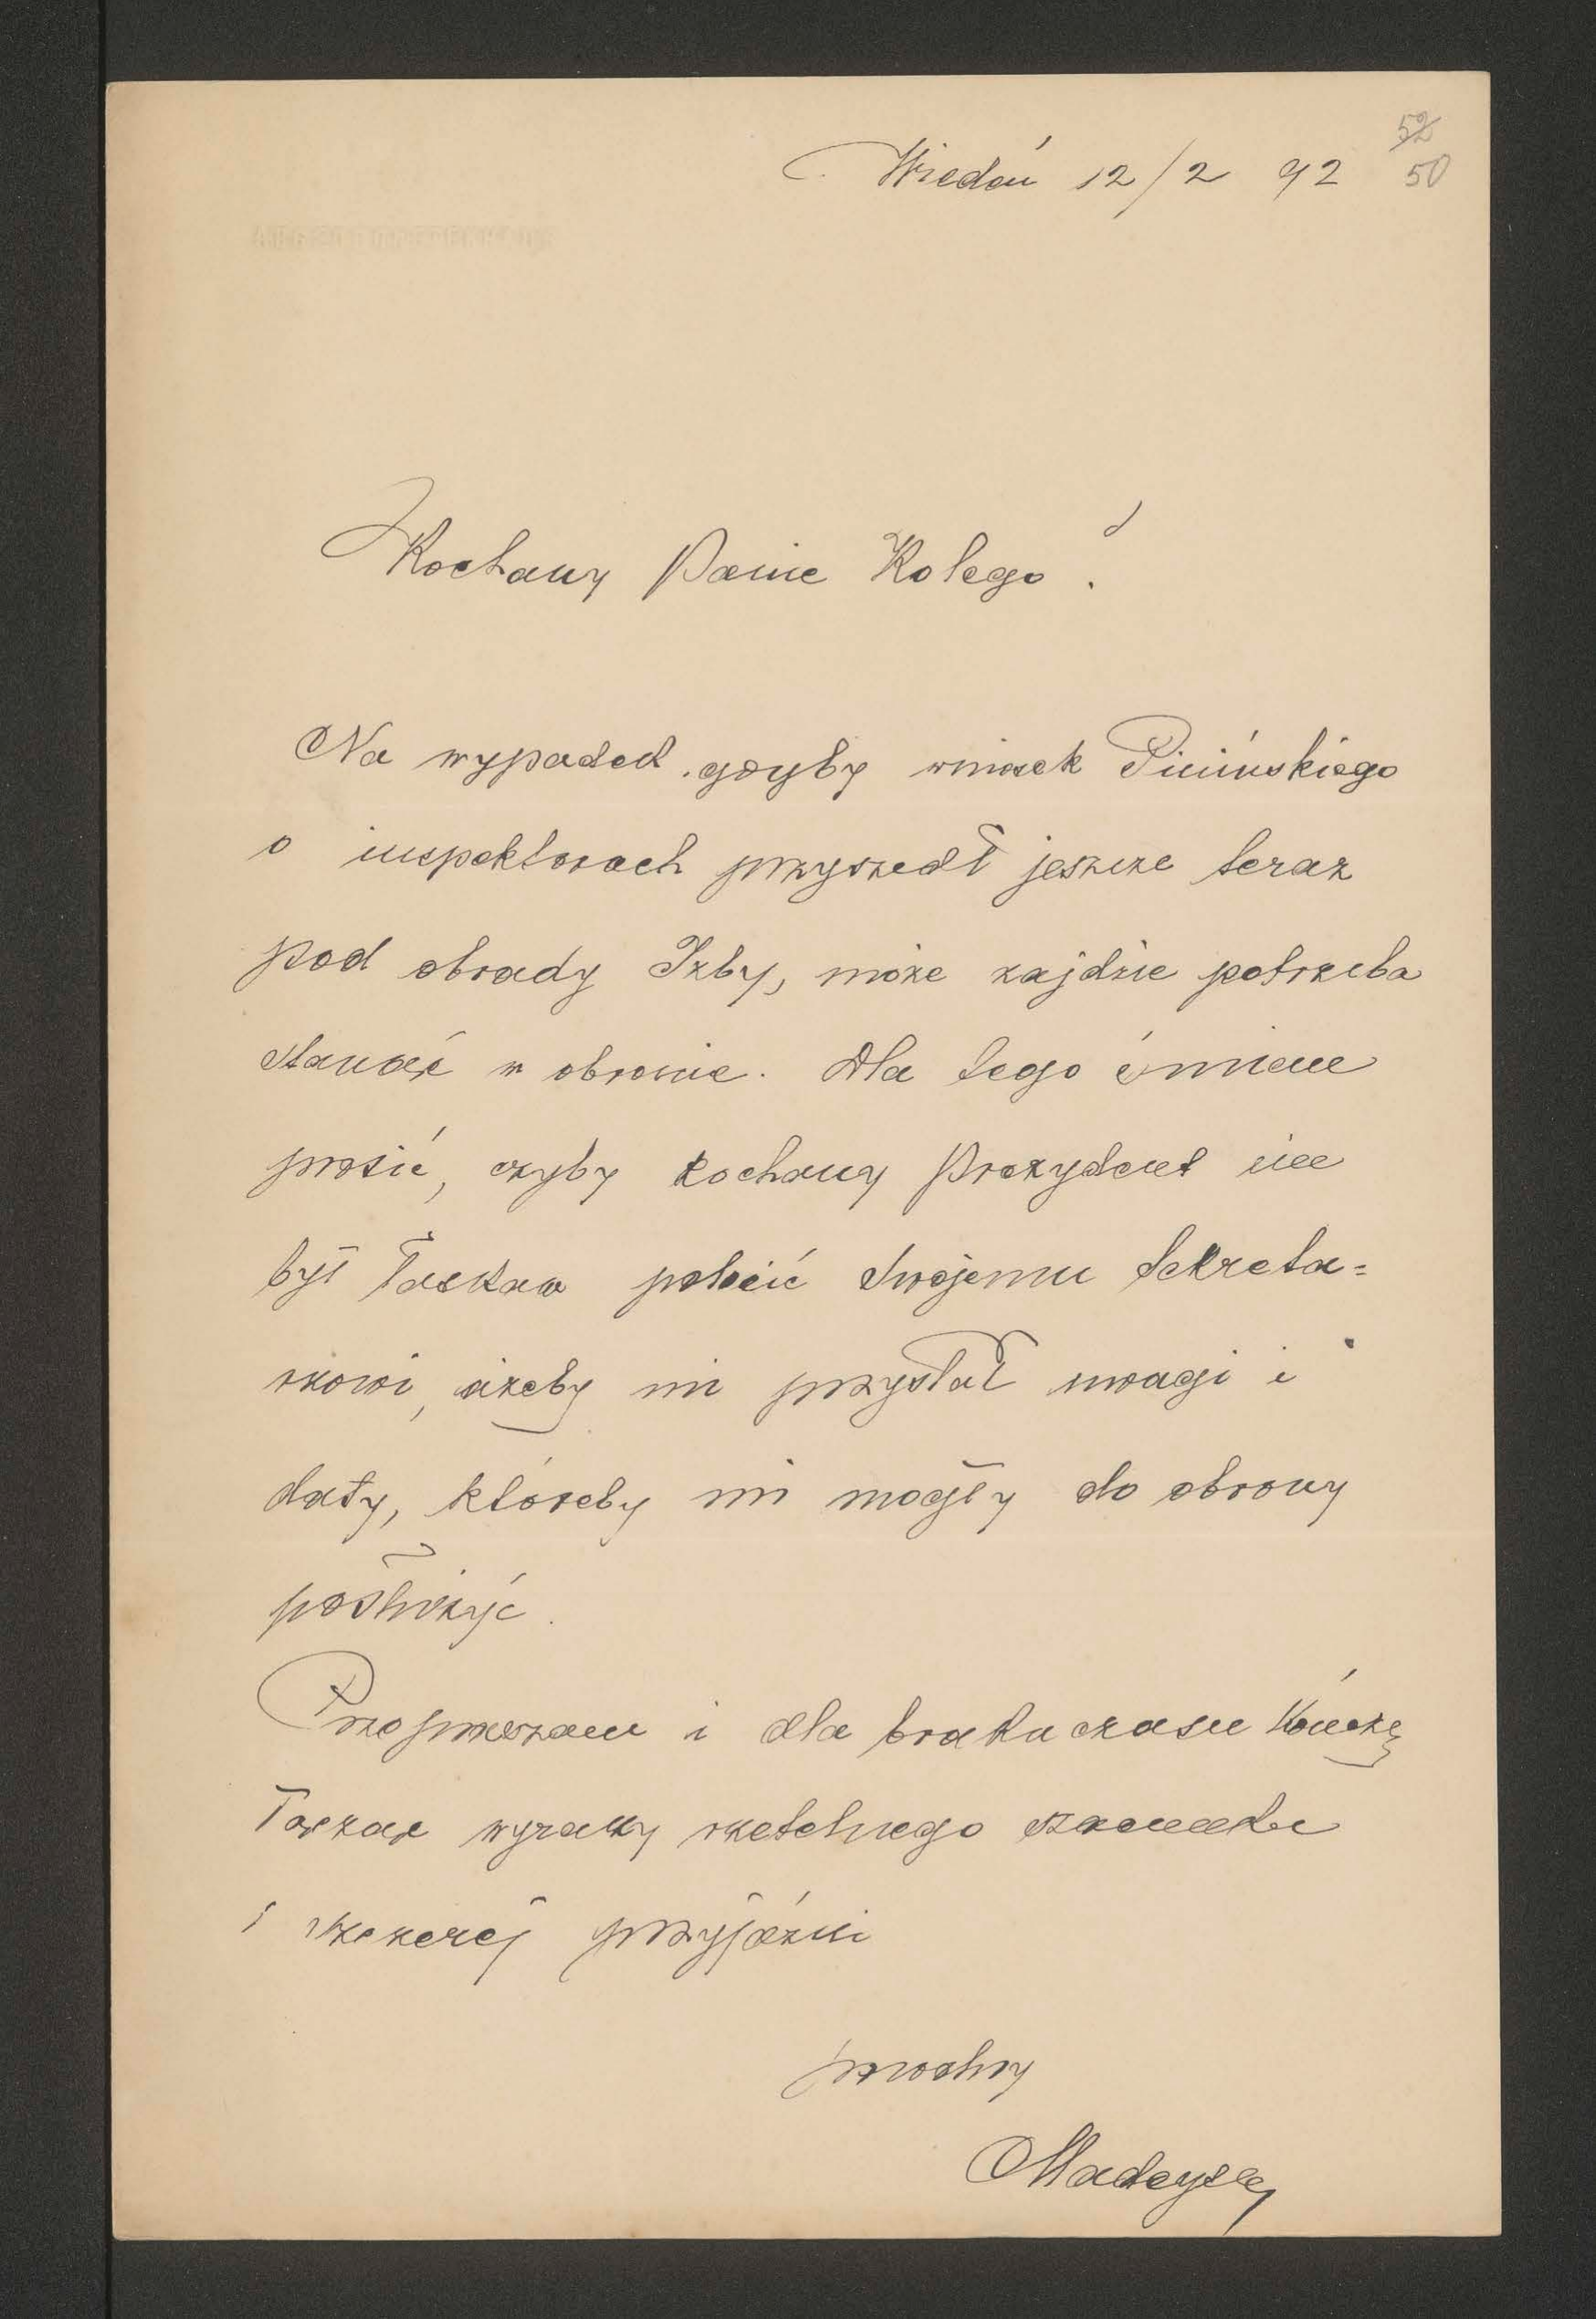 52
Wiedeń 12/2 92 50
Kochany Panie Kolego!
Na wypadek gdyby wniosek Pinińskiego
o inspektorach przyszedł jeszcze teraz
pod obrady Izby, może zajdzie potrzeba
stanąć w obronie. Dla tego śmiem
prosić, czyby kochany Prezydent nie
był łaskaw polecić swojemu sekreta=
rzowi, ażeby mi przysłał uwagi i
daty, któreby mi mogły do obrony
posłużyć.
Przepraszam i dla braku czasu kończę
łącząc wyrazy rzetelnego szacunku
i szczerej przyjaźni
powolny
Madeyski